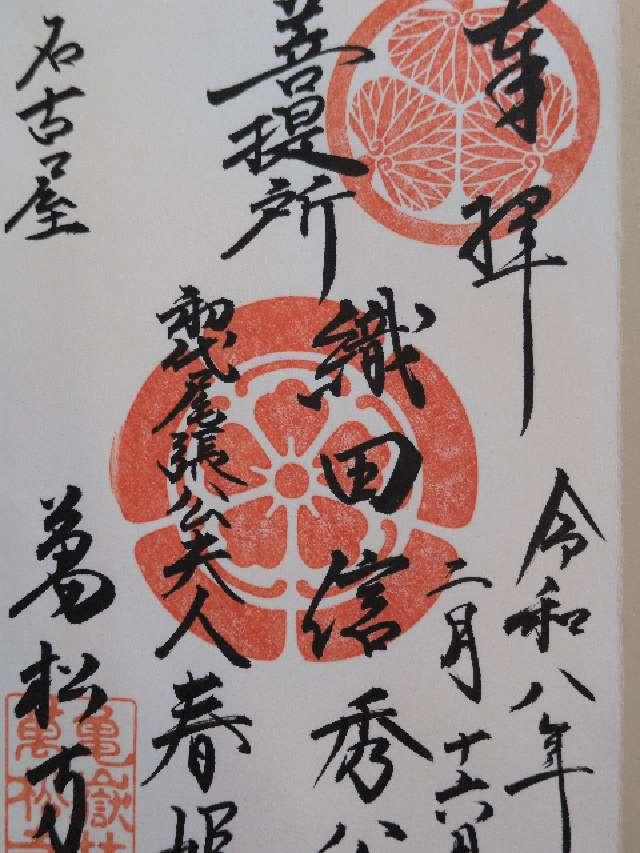 奉拝
令和八年
二月十六日
菩提所
織田信秀公
初代尾張公夫人
春姫
名古屋
萬松寺